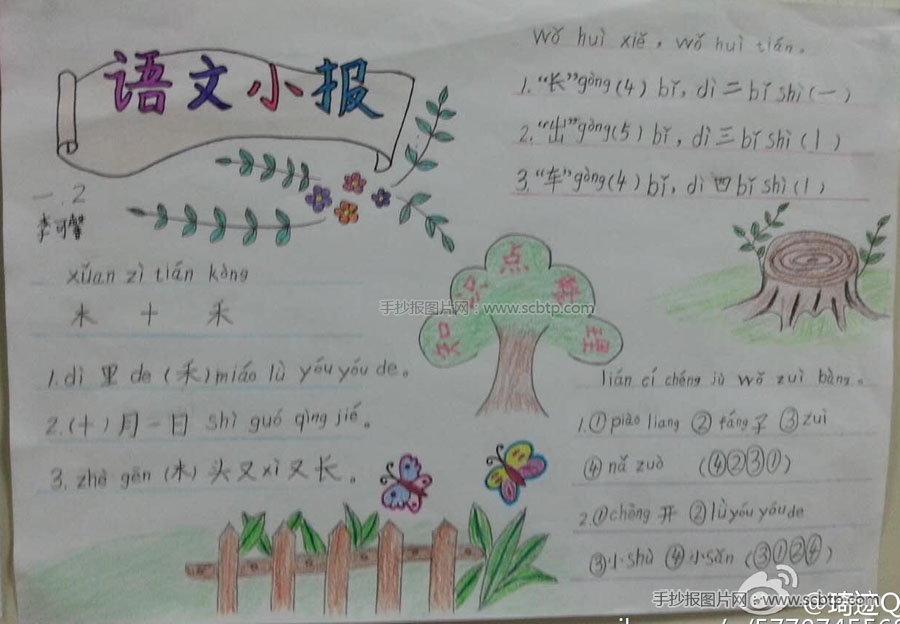 语文小报
一.2
李可馨
xuǎn zì tián kòng
木 十 禾
1.dì 里 de (禾) miáo lǜ yóu yóu de。
2.(十)月一日 shì guó qìng jié。
3.zhè gēn (木) 头又 xì 又长。
知识点整理
手抄报图片网：www.scbtp.com
Wǒ huì xiě，wǒ huì tián。
1.“长”gòng(4) bǐ, dì 二 bǐ shì (一)
2.“出”gòng(5) bǐ, dì 三 bǐ shì (丨)
3.“车”gòng(4) bǐ, dì 四 bǐ shì (丨)
lián cí chéng jù wǒ zuì bàng。
1.①piào liang ②fáng子 ③zuì
④nǎ zuò (④②③①)
2.①chēng 开 ②lǜ yóu yóu de
③小shù ④小sǎn (③①②④)
手抄报图片网：www.scbtp.com
@琦迹Q